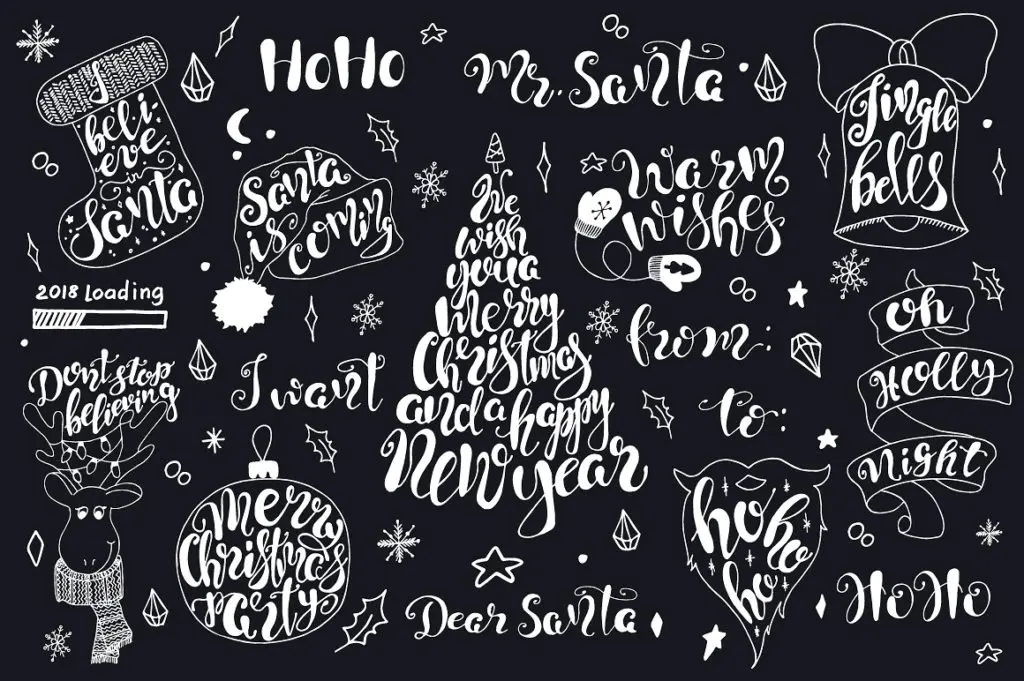 HoHo
Mr. Santa
I
beli-
eve
in
Santa
Santa
is
coming
We
wish
you a
Merry
Christmas
and a happy
New year
Warm
wishes
Jingle
bells
2018 Loading
Dont stop
believing
I want
from:
to:
oh
Holly
Night
Merry
Christmas
party
Dear Santa
ho ho
ho
HoHo